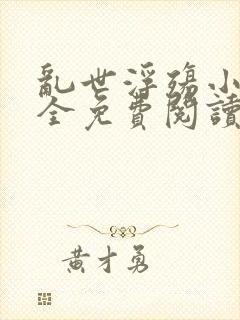 亂世浮殤小
全免費閱讀
黃才勇